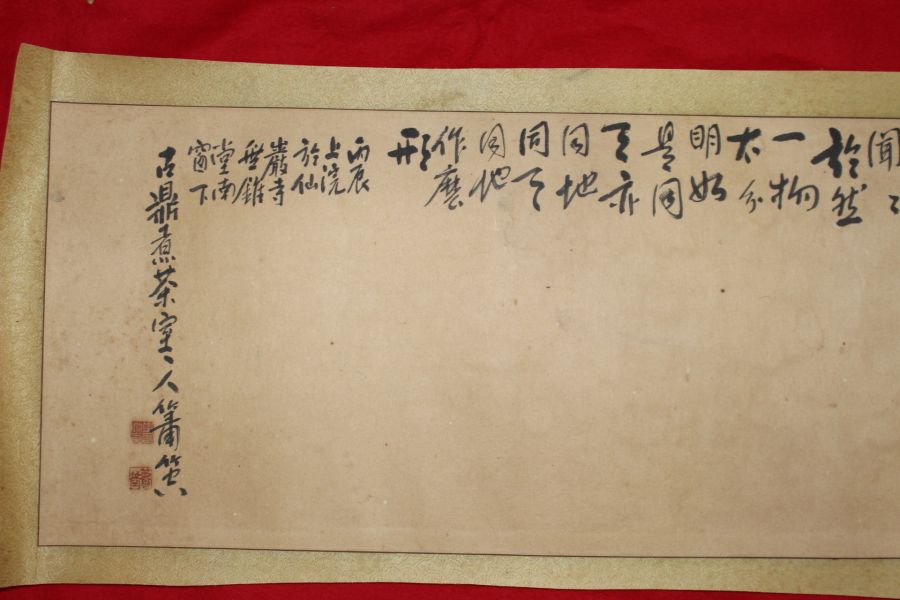 聞
於然
一物
太分
明如
是同
天亦
同地
同天
同地
作麼
形
丙辰
上浣
於仙
巖寺
無錐
堂南
窗下
古鼎煮茶室〻人簫